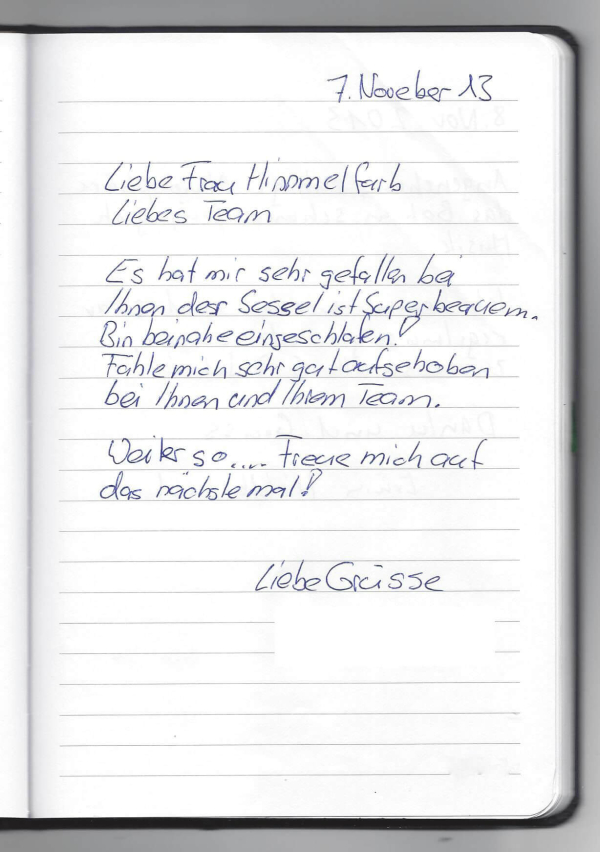 7. Noveber 13
Liebe Frau Himmelfarb
Liebes Team
Es hat mir sehr gefallen bei
Ihnen der Sessel ist Super bequem.
Bin beinahe eingeschlafen!
Fühle mich sehr gut aufgehoben
bei Ihnen und Ihrem Team.
Weiter so.... Freue mich auf
das nächste mal!
Liebe Grüsse